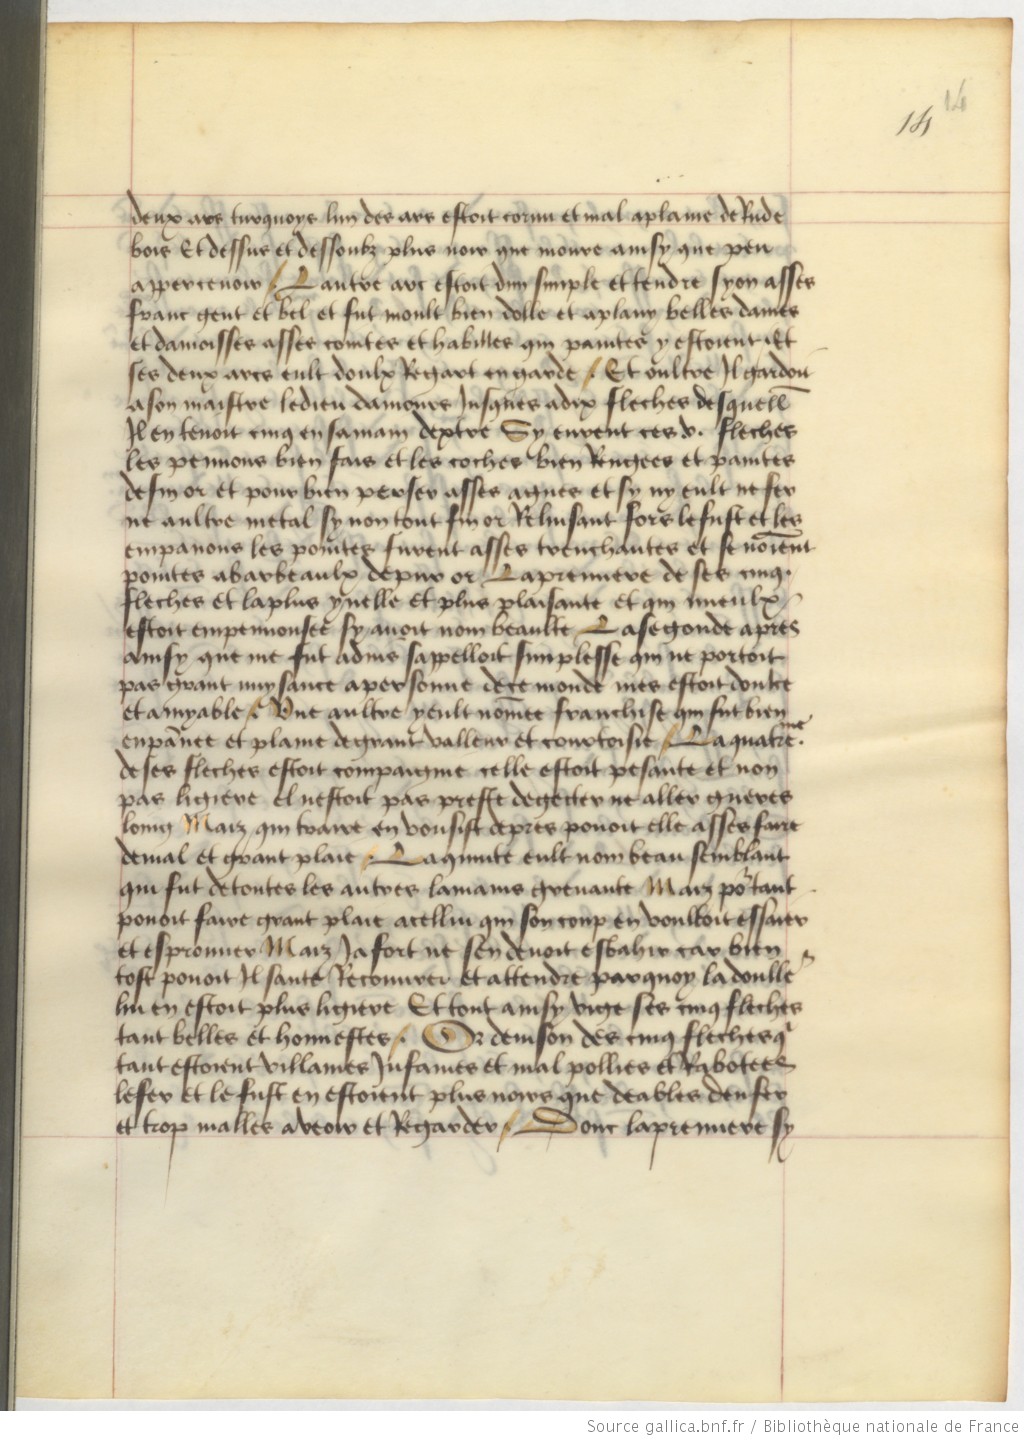 14 14
deux ars turquoys lun des ars estoit cornu et mal aplanie de Rude
bois Et dessus et dessoubz plus noir que moure ainsy que peu
appercenoir / Lautre arc estoit dun simple et tendre syon asses
franc gent et bel et fut moult bien dolle et aplany belles dames
et damoisses asses cointes et habilles qui paintes y estoient Et
ses deux arcs eult doulx Regart en garde / Et oultre Il gardoit
a son maistre le dieu damours Jusques a dix fleches desquell
Il en tenoit cinq en sa main dextre Sy eurent ces v. fleches
les pennons bien fais et les coches bien Rengees et paintes
de fin or et pour bien perser asses agues et sy ny eult ne fer
ne aultre metal sy non tout fin or Reluisant fors le fust et les
empanons les pointes furent asses trenchantes et se noient
pointes a barbeaulx de pur or La premiere de ses cinq
fleches et la plus ynelle et plus plaisante et qui mieulx
estoit empennonsee sy auoit nom beaulte La segonde apres
ainsy que me fut aduis sappelloit simplesse qui ne portoit
pas grant nuysance a personne de ce monde mes estoit doulce
et amyable / Une aultre y eult nomee franchise qui fut bien
enpanee et plaine de grant valleur et courtoisie / La quatrme
de ses fleches estoit compaignie celle estoit pesante et non
pas ligiere el nestoit pas preste de getter ne aller gueres
loing Maiz qui traire en vousist de pres pouoit elle asses faire
de mal et grant plaie / La quinte eult nom beau semblant
qui fut de toutes les autres la mains greuante Maiz portant
pouoit faire grant plaie a cellui qui son coup en voulloit essaier
et esprouuer Maiz Ja fort ne sen deuoit esbahir car bien
tost pouoit Il sante Recouurer et attendre par quoy la doulle
lui en estoit plus ligiere Et tout ainsy vige ses cinq fleches
tant belles et honnestes / Or deuison des cinq fleches q
tant estoient villaines Infames et mal pollies et Rabotees
le fer et le fust en estoient plus noirs que deables denfer
et trop malles a veoir et Regarder / Donc la premiere sy
Source gallica.bnf.fr / Bibliothèque nationale de France